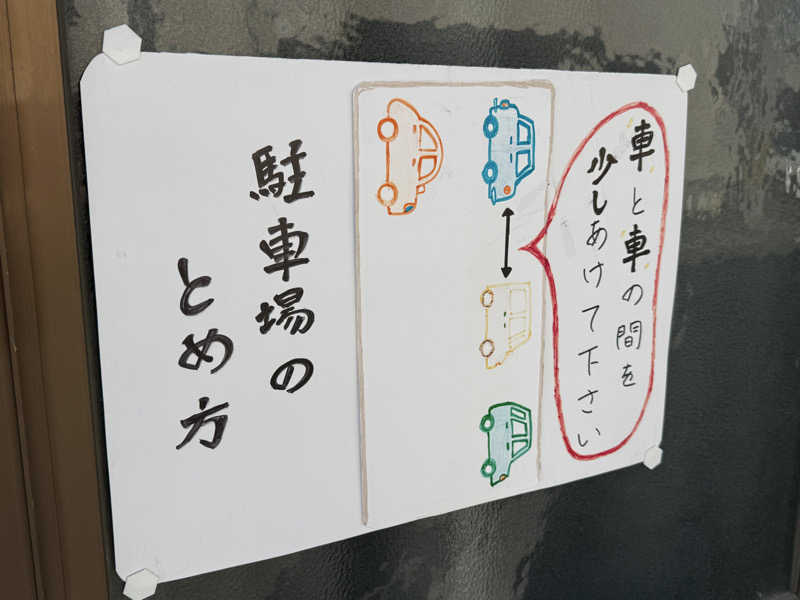 車と車の間を
少しあけて下さい
駐車場の
とめ方